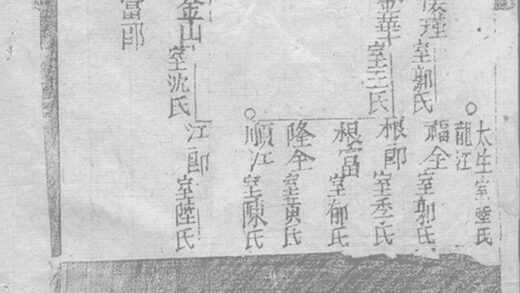 瑾室郭氏
華室王氏
金山室沈氏
富郎
太生室陸氏
龍江
福全室郭氏
根郎室氏
根富室郁氏
隆全室黃氏
順江室陳氏
江郎室陸氏